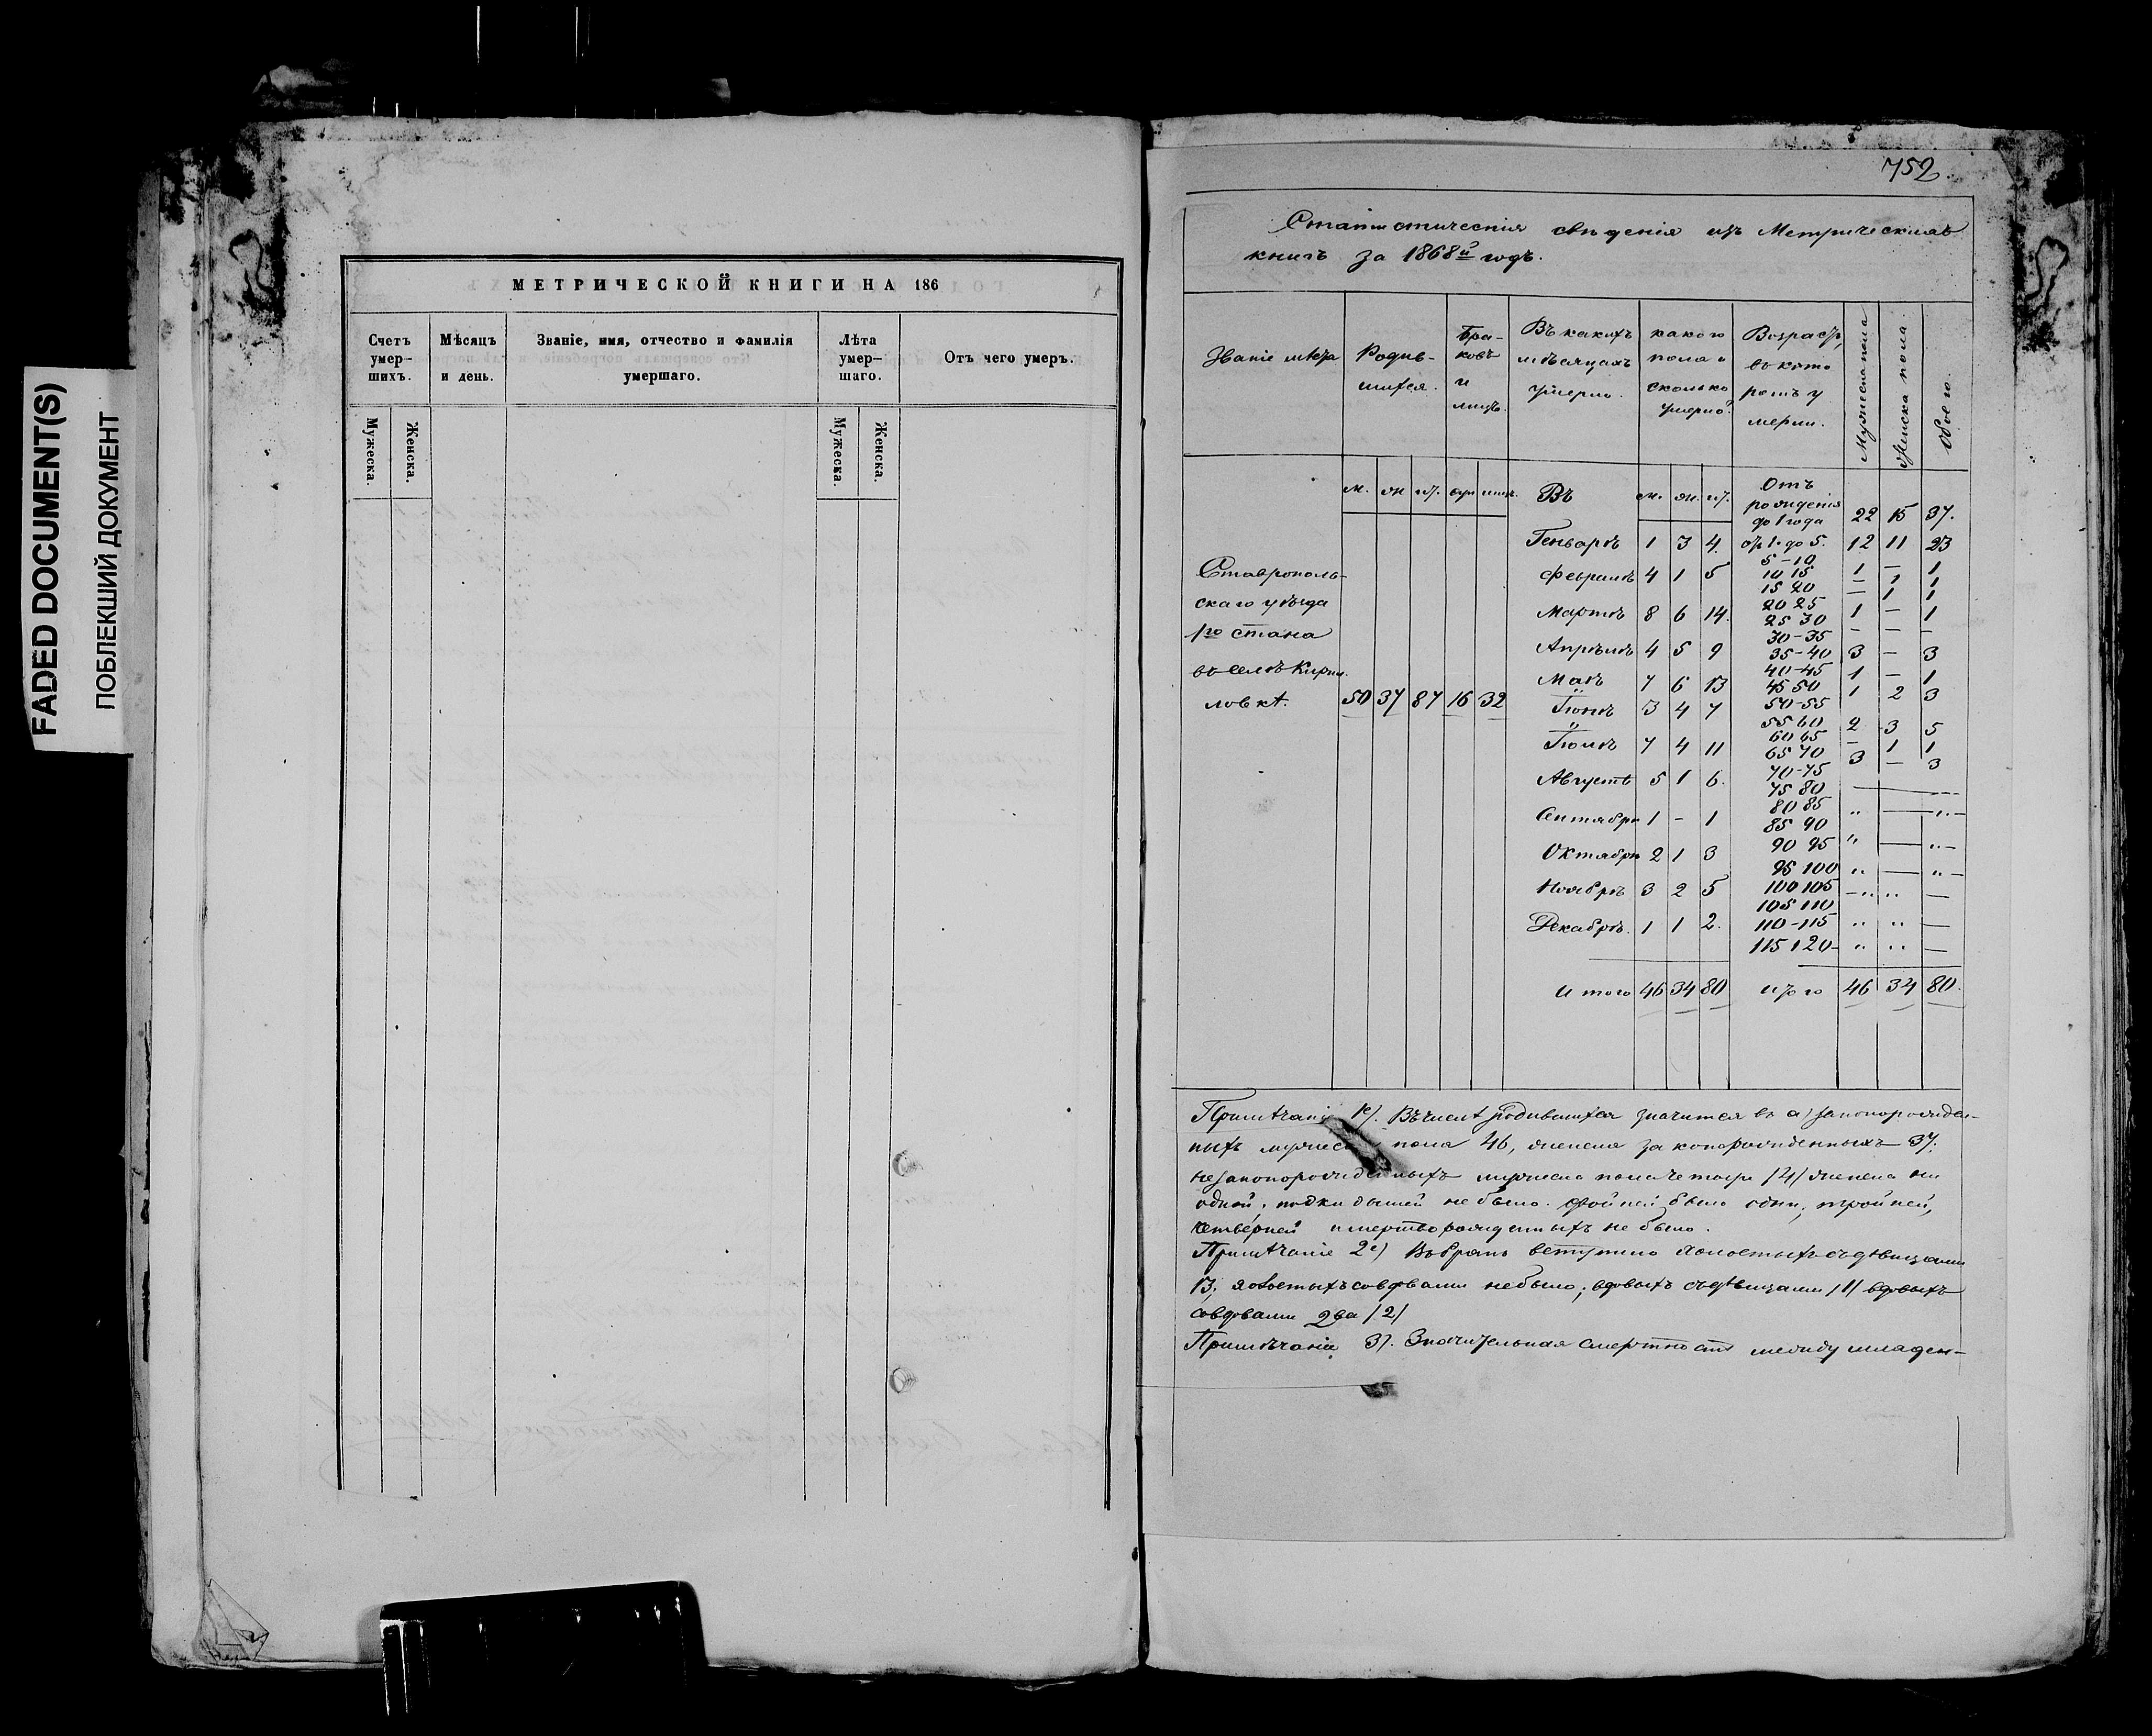 FADED DOCUMENT(S)
ПОБЛЕКШИЙ ДОКУМЕНТ
МЕТРИЧЕСКОЙ КНИГИ НА 186
Счетъ умер-шихъ. Мѣсяцъ и день. Званіе, имя, отчество и фамилія умершаго. Лѣта умер-шаго. Отъ чего умеръ.
Мужеска. Женска. Мужеска. Женска.
752
Статистическія свѣденія изъ Метрическихъ
книгъ за 1868й годъ.
Званіе мѣста Родив-шихся. Бра-ковъ и лицъ. Въ какихъ мѣсяцахъ умерло. какого пола и сколько умерло? Возрастъ, въ кото ромъ у мерли. Мужеска пола Женска пола. Обоего.
м. ж. об. бр. лицъ. Въ м. ж. об. Отъ рожденія до 1 года 22 15 37.
Генварѣ 1 3 4. отъ 1. до 5. 12 11 23
5-10 1 — 1
Ставрополь-
скаго уѣзда
1го стана
въ селѣ Кири-
ловкѣ. 50 37 87 16 32
Февралѣ 4 1 5 10 15 — 1 1
15 20 — 1 1
Мартѣ 8 6 14. 20 25 1 — 1
25 30 — — —
30-35
Апрѣлѣ 4 5 9 35-40 3 — 3
40-45 1 — 1
Маѣ 7 6 13 45 50 1 2 3
Іюнѣ 3 4 7 50-55
55 60 2 3 5
60 65 — 1 1
Іюлѣ 7 4 11 65 70 3 — 3
70-75
Августѣ 5 1 6. 75 80
80 85
Сентябрѣ 1 - 1 85 90
Октябрѣ 2 1 3 90 95
95 100
Ноябрѣ 3 2 5 100 105
105 110
Декабрѣ. 1 1 2. 110-115
115 120-
Итого 46 34 80 Итого 46 34 80.
Примѣчаніе 1е). Въ числѣ родившихся значится въ а) законорожден-
ныхъ мужеска пола 46, женска законорожденныхъ 37.
незаконорожденныхъ мужеска пола четыре /4/ женска ни
одной, подкидышей не было. двойней было одни, тройней,
четверней и мертворожденныхъ не было.
Примѣчаніе 2е) Въ бракъ вступило холостыхъ съ дѣвицами
13; холостыхъ со вдовами не было; вдовыхъ съ дѣвицами /1/ вдовыхъ
со вдовами два /2/
Примѣчаніе 3). Значительная смертность между младен-